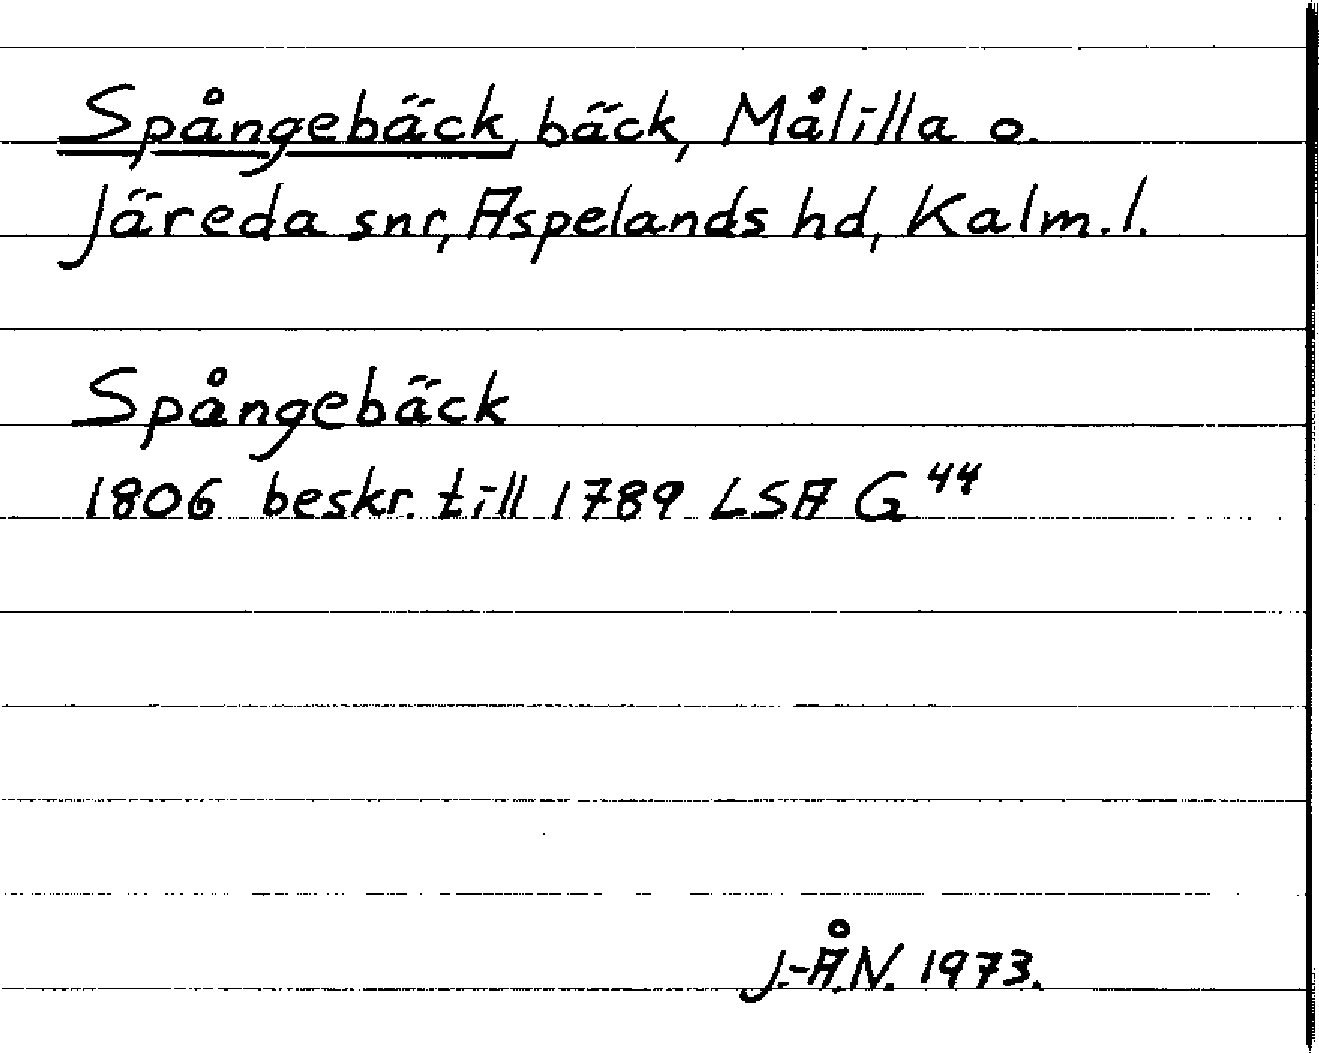 Spångebäck, bäck, Målilla o.
Järeda snr, Aspelands hd, Kalm. l.
Spångebäck
1806 beskr. till 1789 LSA G 44
J.-Å.N. 1973.